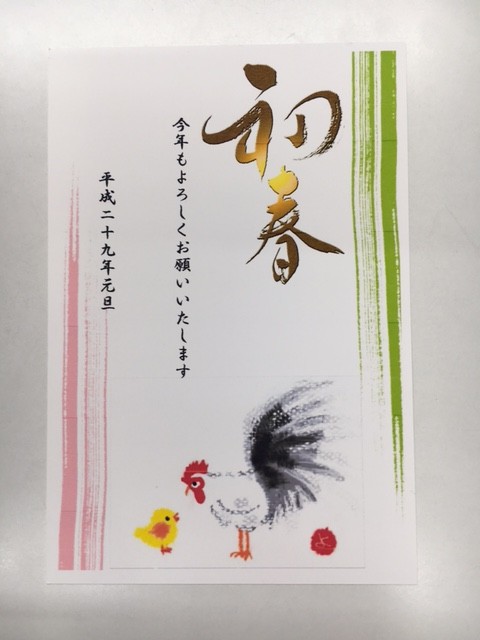 初春
今年もよろしくお願いいたします
平成二十九年元旦